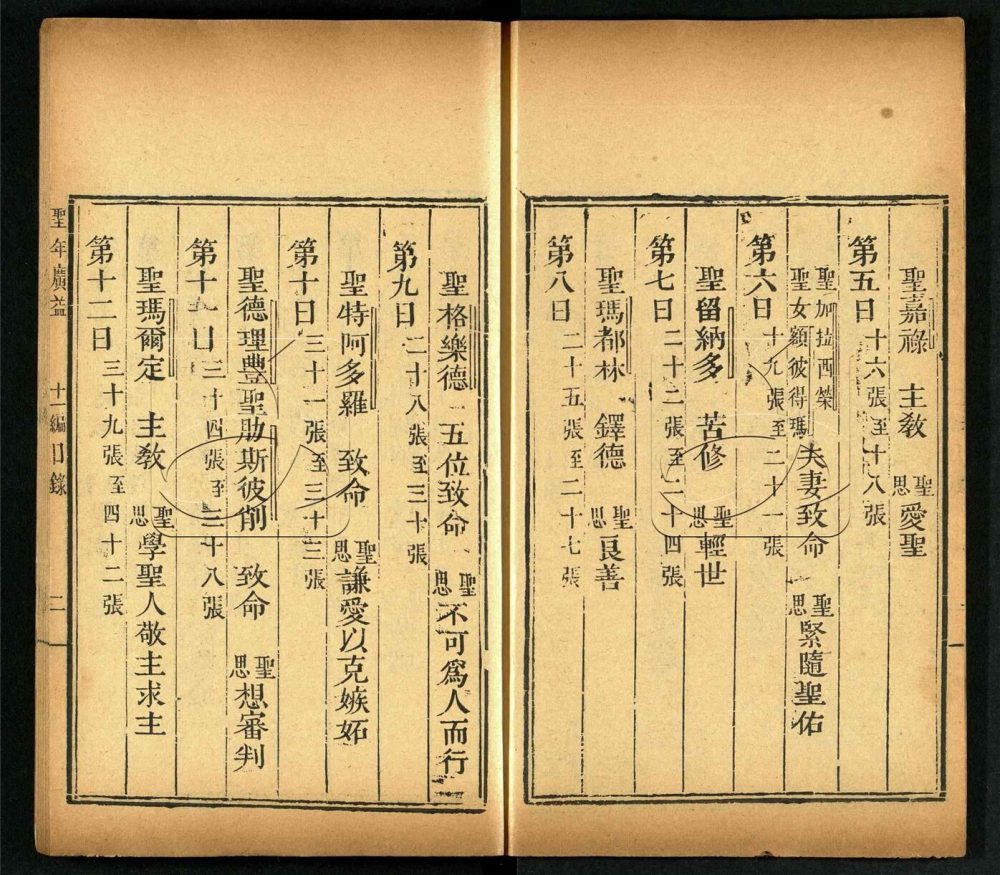 聖嘉祿 主教 聖思愛聖
第五日 十六張至十八張
聖加拉西榮聖女額彼得瑪夫妻致命 聖思緊隨聖佑
第六日 十九張至二十一張
聖留納多 苦修 聖思輕世
第七日 二十二張至二十四張
聖瑪都林 鐸德 聖思良善
第八日 二十五張至二十七張
聖格樂德 五位致命 聖思不可為人而行
第九日 二十八張至三十張
聖特阿多羅 致命 聖思謙愛以克嫉妬
第十日 三十一張至三十三張
聖德理豐聖肋斯彼削 致命 聖思想審判
第十一日 三十四張至三十八張
聖瑪爾定 主教 聖思學聖人敬主求主
第十二日 三十九張至四十二張
聖年廣益 十一編目錄 二